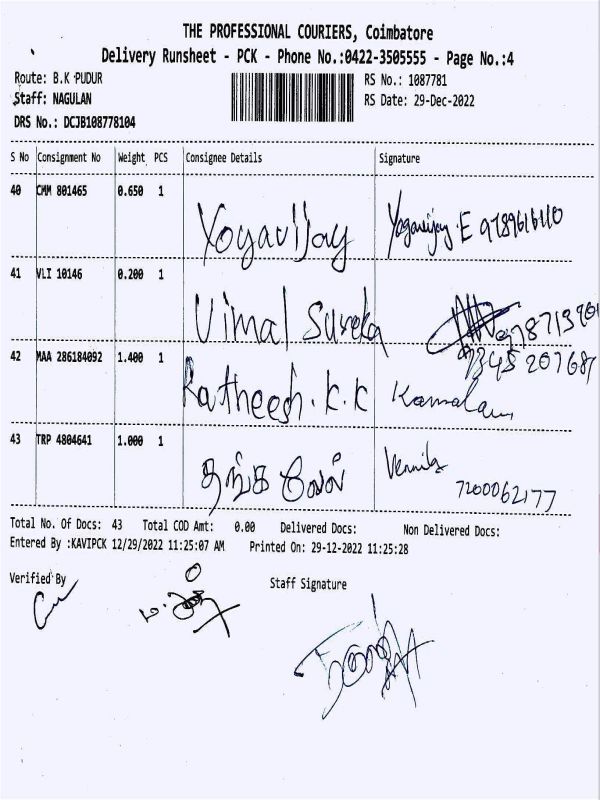 THE PROFESSIONAL COURIERS, Coimbatore
Delivery Runsheet - PCK - Phone No.:0422-3505555 - Page No.:4
Route: B.K PUDUR RS No.: 1087781
Staff: NAGULAN RS Date: 29-Dec-2022
DRS No.: DCJB108778104
S No Consignment No Weight PCS Consignee Details Signature
40 CMM 801465 0.650 1
Yogavijay Yogavijay.E 9789616110
41 VLI 10146 0.200 1
Vimal Sureka
42 MAA 286184092 1.400 1
Ratheesh.K.K Kamalam
43 TRP 4804641 1.000 1
தங்கவேல் Vennila
7200062177
Total No. Of Docs: 43 Total COD Amt: 0.00 Delivered Docs: Non Delivered Docs:
Entered By :KAVIPCK 12/29/2022 11:25:07 AM Printed On: 29-12-2022 11:25:28
Verified By Staff Signature